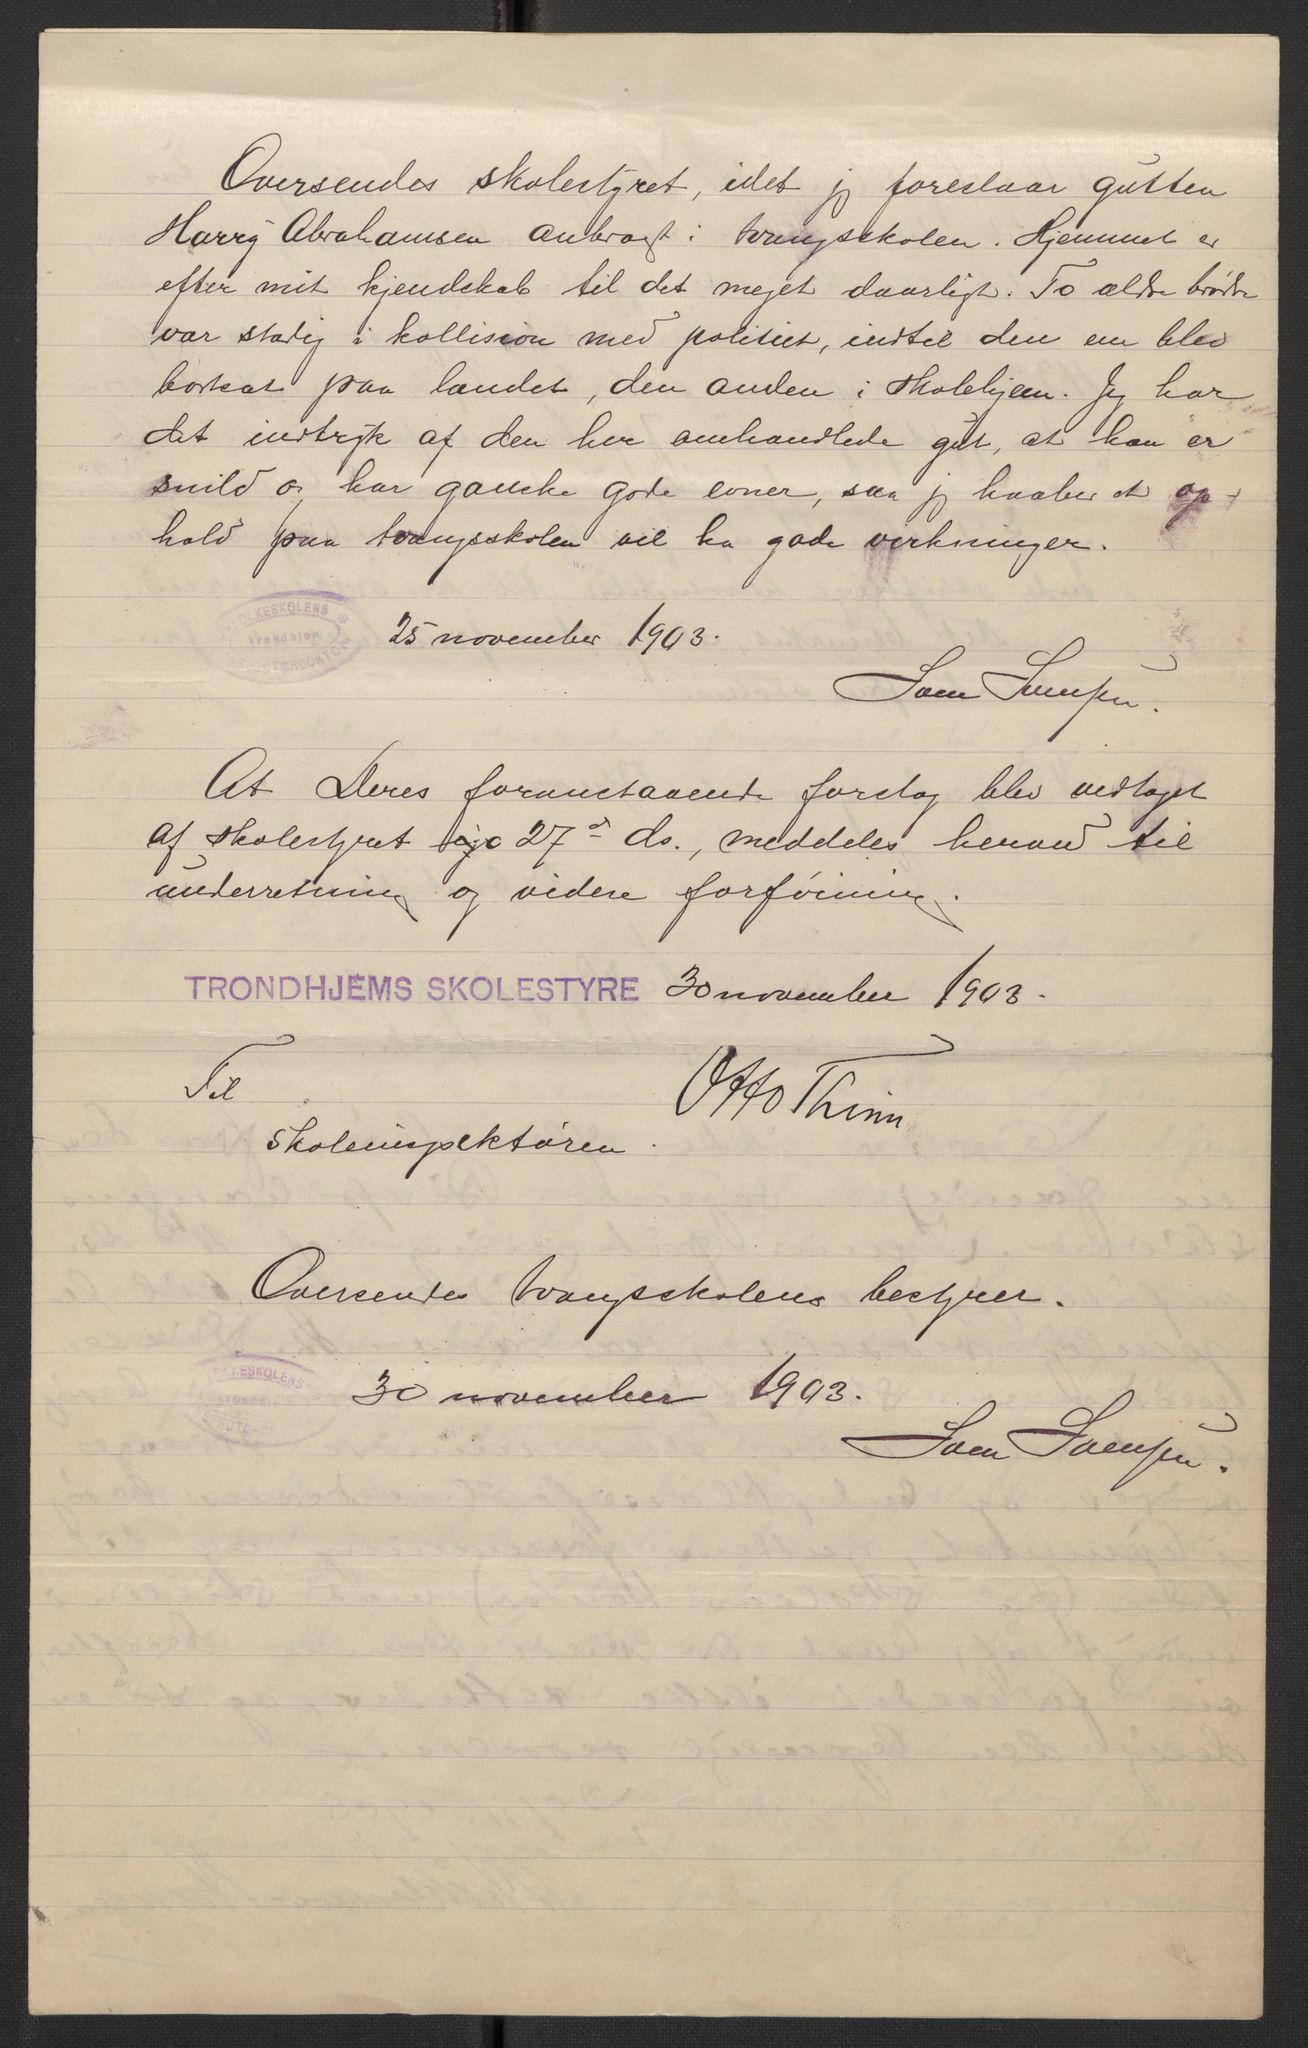 Oversendes skolestyret, idet jeg foreslaar gutten
Harry Abrahamsen anbragt i tvangsskolen. Hjemmet er
efter mit kjendskab til det meget daarligt. To ældre brødre
var stadig i kollision med politiet, indtil den ene blev
bortsat paa landet, den anden i skolehjem. Jeg har
det indtryk af den her omhandlede gut, at han er
snild og har ganske gode evner, saa jeg haaber at op-
hold paa tvangsskolen vil ha gode virkninger.
FOLKESKOLENS
Trondhjem
INSPEKTØRCONTOR
25 november 1903.
At Deres foranstaaende forslag blev vedtaget
af skolestyret 27d ds., meddeles herved til
underretning og videre forføining.
TRONDHJEMS SKOLESTYRE 30 november 1903.
Til
Otto Thinn
skoleinspektøren.
Oversendes tvangsskolens bestyrer.
FOLKESKOLENS
30 november 1903.